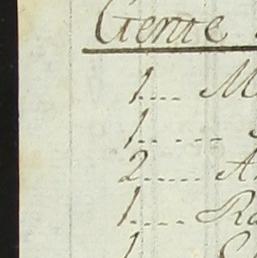 Gente
1.... M
1.. ...
2..... A
1.... Ra
1